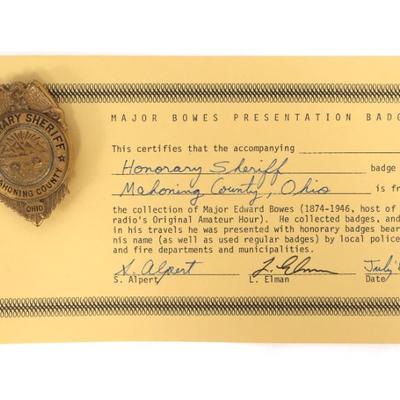 RARY SHERIFF
MAHONING COUNTY
OHIO
MAJOR BOWES PRESENTATION BADG
This certifies that the accompanying
Honorary Sheriff badge
Mahoning County, Ohio is fr
the collection of Major Edward Bowes (1874-1946, host of
radio's Original Amateur Hour). He collected badges, and
in his travels he was presented with honorary badges bear
his name (as well as used regular badges) by local police
and fire departments and municipalities.
S. Alpert L. Elman July
S. Alpert L. Elman Date